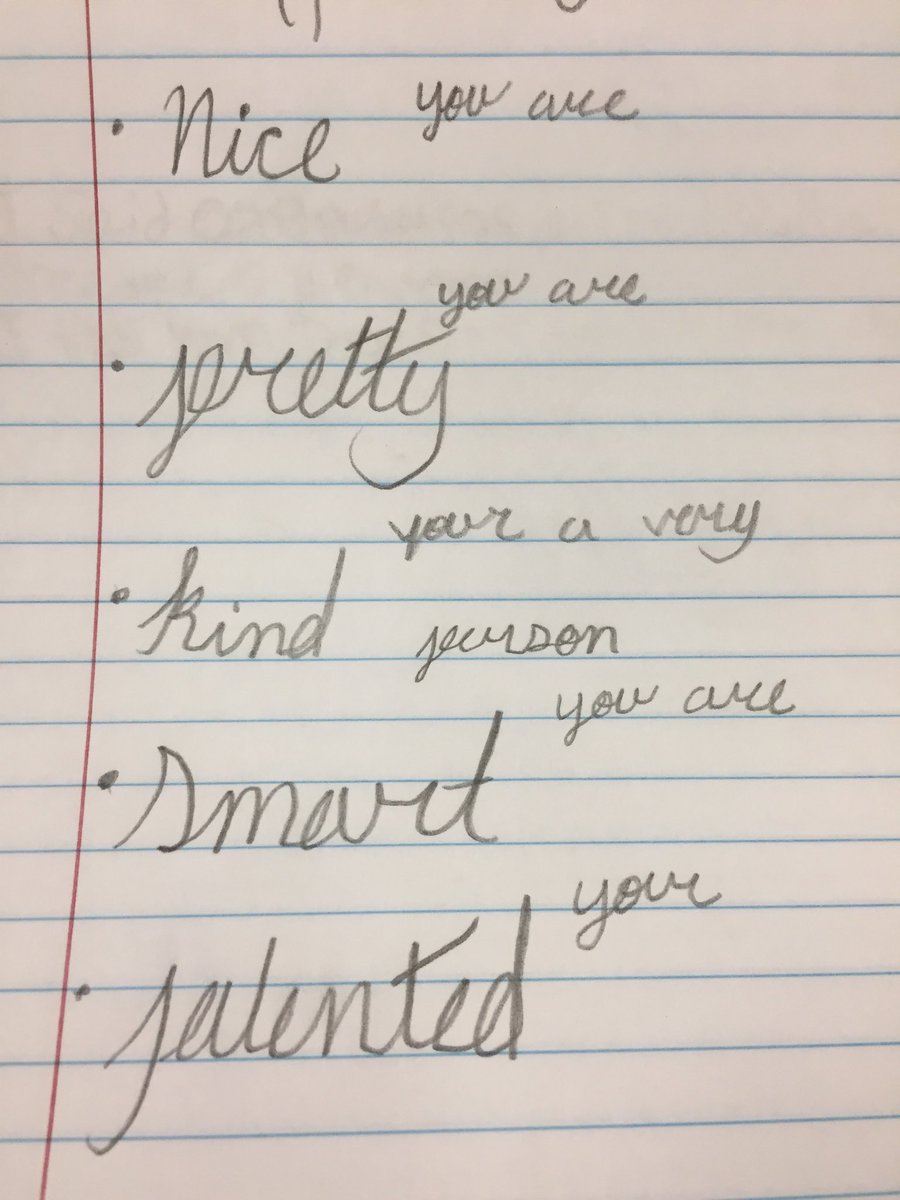 • Nice you are
• pretty you are
• kind your a very
person
• smart you are
• talented your